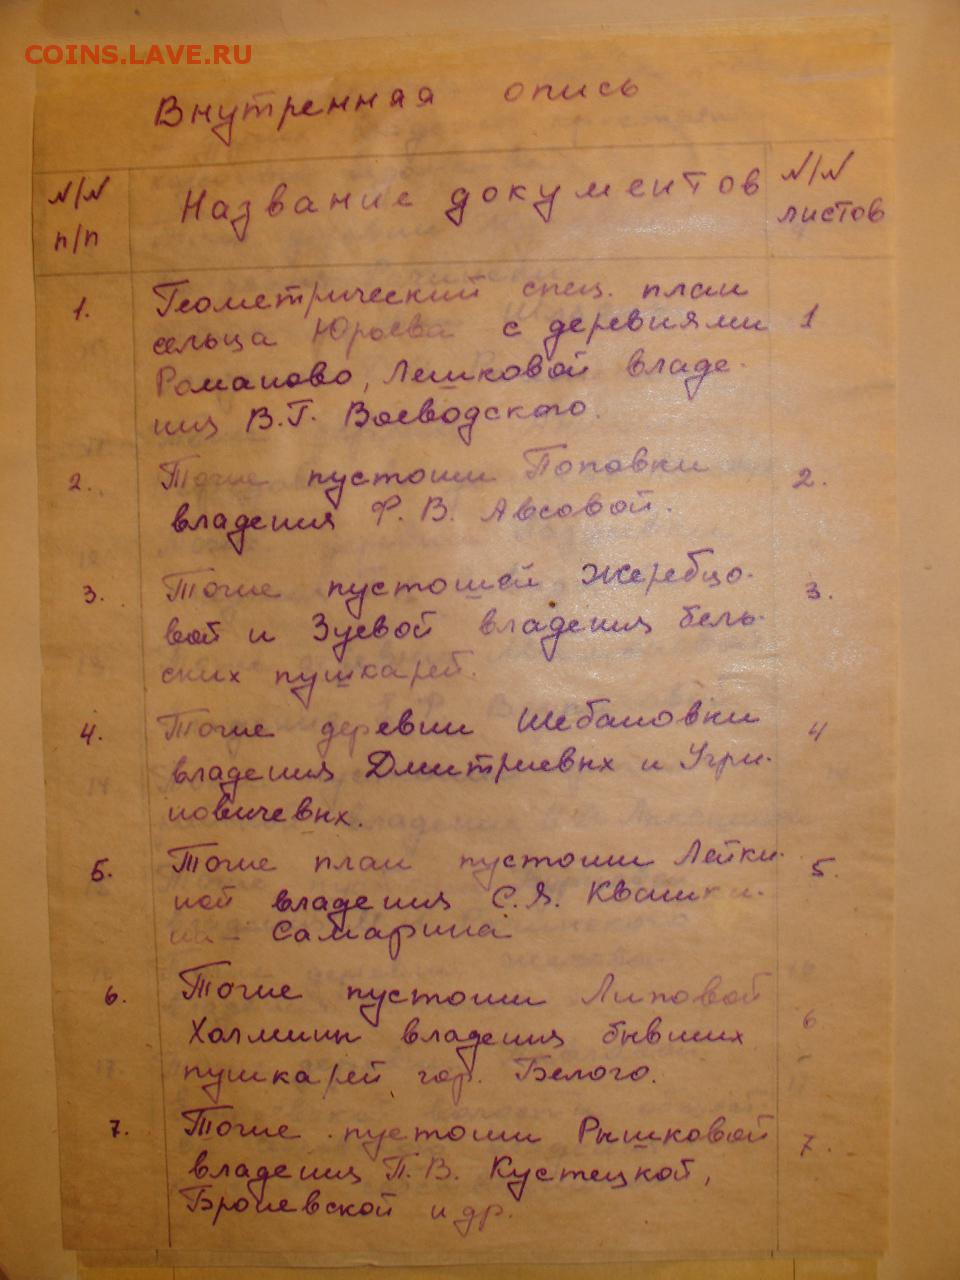 COINS.LAVE.RU
Внутренняя опись
N/N п/п Название документов N/N листов
1. Геометрический спец. план 1
сельца Юрьева с деревнями
Романово, Лешковой владе-
ния В.Г. Воеводского.
2. Тогие пустоши Поповки 2.
владения Ф. В. Авсовой.
3. Тогие пустошей Жеребцо- 3.
вой и Зуевой владения бель-
ских пушкарей.
4. Тогие деревни Шебановки 4
владения Дмитриевых и Угри-
новичевых.
5. Тогие план пустоши Лейки- 5.
ной владения С.Я. Квашни-
на - Самарина
6. Тогие пустоши Липовой 6
Холмины владения бывших
пушкарей гор. Белого.
7. Тогие пустоши Рышковой 7.
владения П.В. Кустецкой,
Броневской и др.